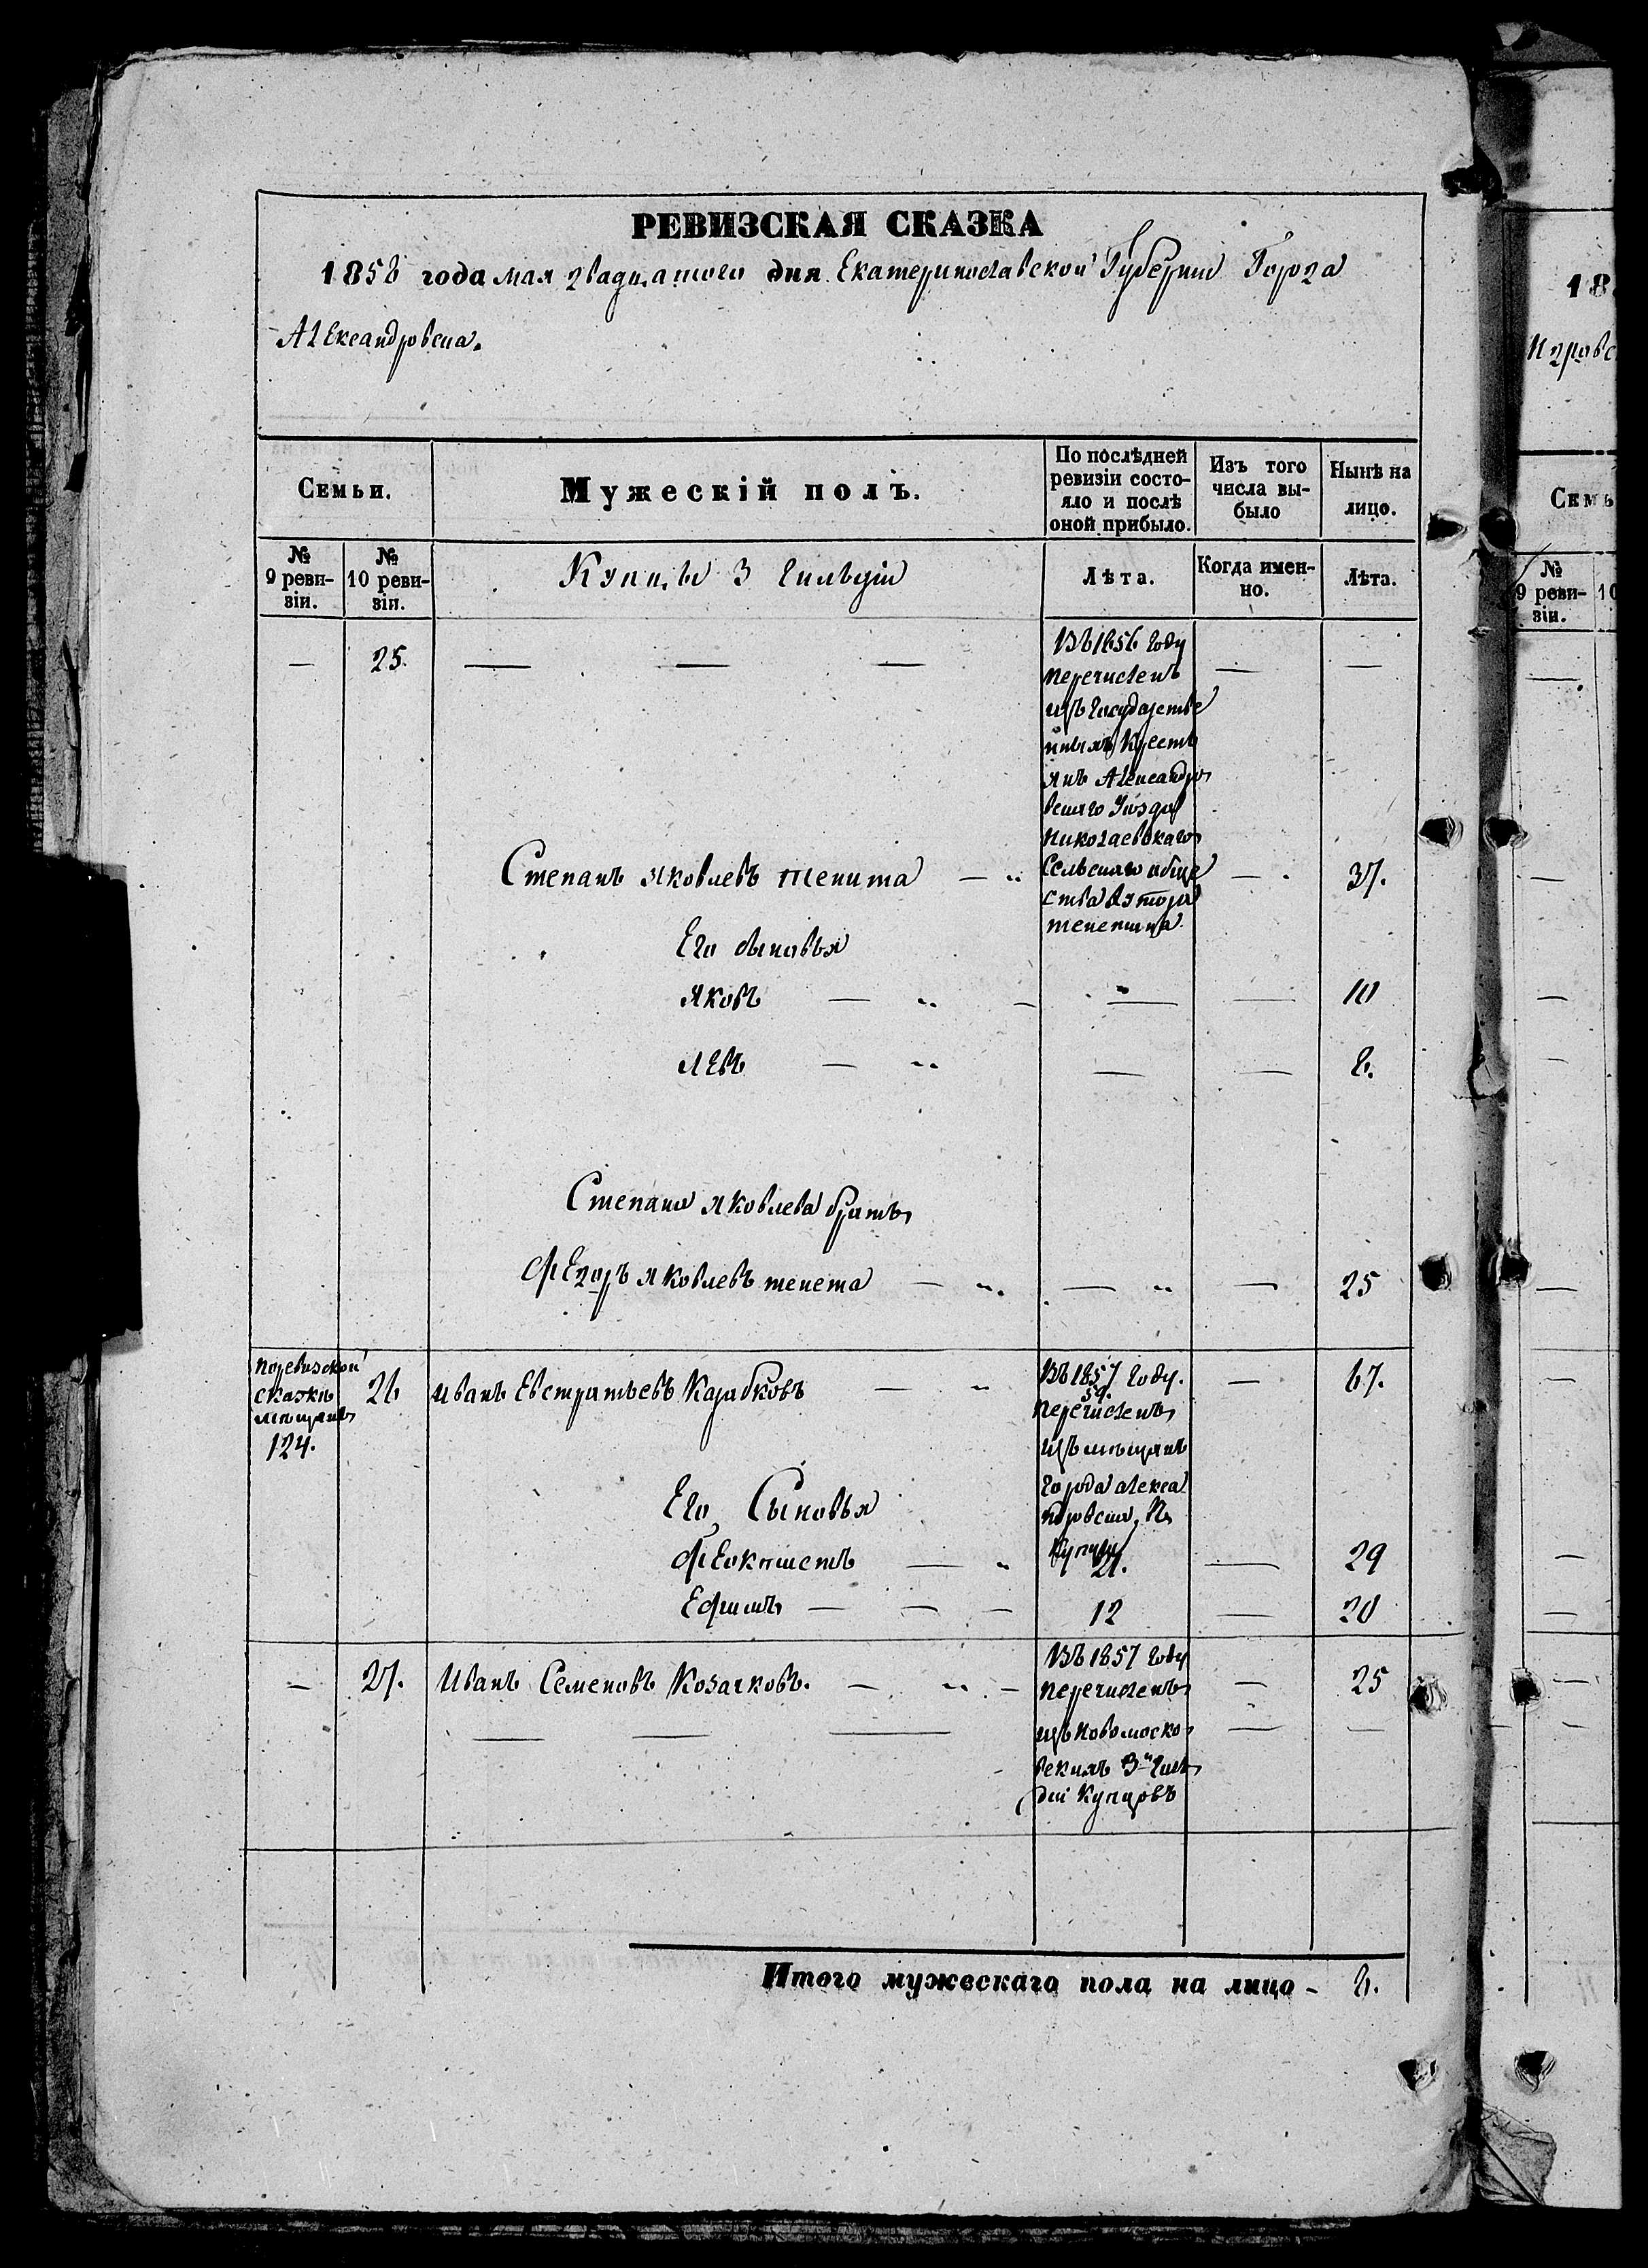 РЕВИЗСКАЯ СКАЗКА
1858 года мая двадцатого дня Екатеринославской Губерніи Города
Александровска.
Семьи.
Мужескій полъ.
По послѣдней
ревизіи состо-
яло и послѣ
оной прибыло.
Изъ того
числа вы-
было
Нынѣ на
лицо.
№
9 реви-
зіи.
№
10 реви-
зіи.
Купцы 3 гильдіи
Лѣта.
Когда имен-
но.
Лѣта.
— 25. — — —
Въ 1856 году
перечисленъ
изъ Государстве
нныхъ Кресть
янъ Александро
вскаго Уѣзда
Николаевскаго
Сельскаго обще
ства Хутора
Степанъ Яковлевъ Тепита — 37.
Его сыновья
Яковъ — — — 10
Левъ — — — 8.
Степана Яковлева братъ
Федоръ Яковлевъ тепета — — — 25
По ревизской
сказкѣ
мѣщанъ
124.
26 Иванъ Евстратьевъ Карабковъ — — 67.
Въ 1857 году.
59.
перечисленъ
изъ мѣщанъ
города Алекса
ндровска,
Его Сыновья
Феоктистъ — 21. — 29
Ефимъ — — — 12 — 20
— 27. Иванъ Семеновъ Козачковъ. — — — 25
Въ 1857 году
перечисленъ
изъ Новомоско
вскихъ 3й гиль
діи Купцовъ
Итого мужескаго пола на лицо - 8.
18
Семь
№
9 реви-
зіи.
10